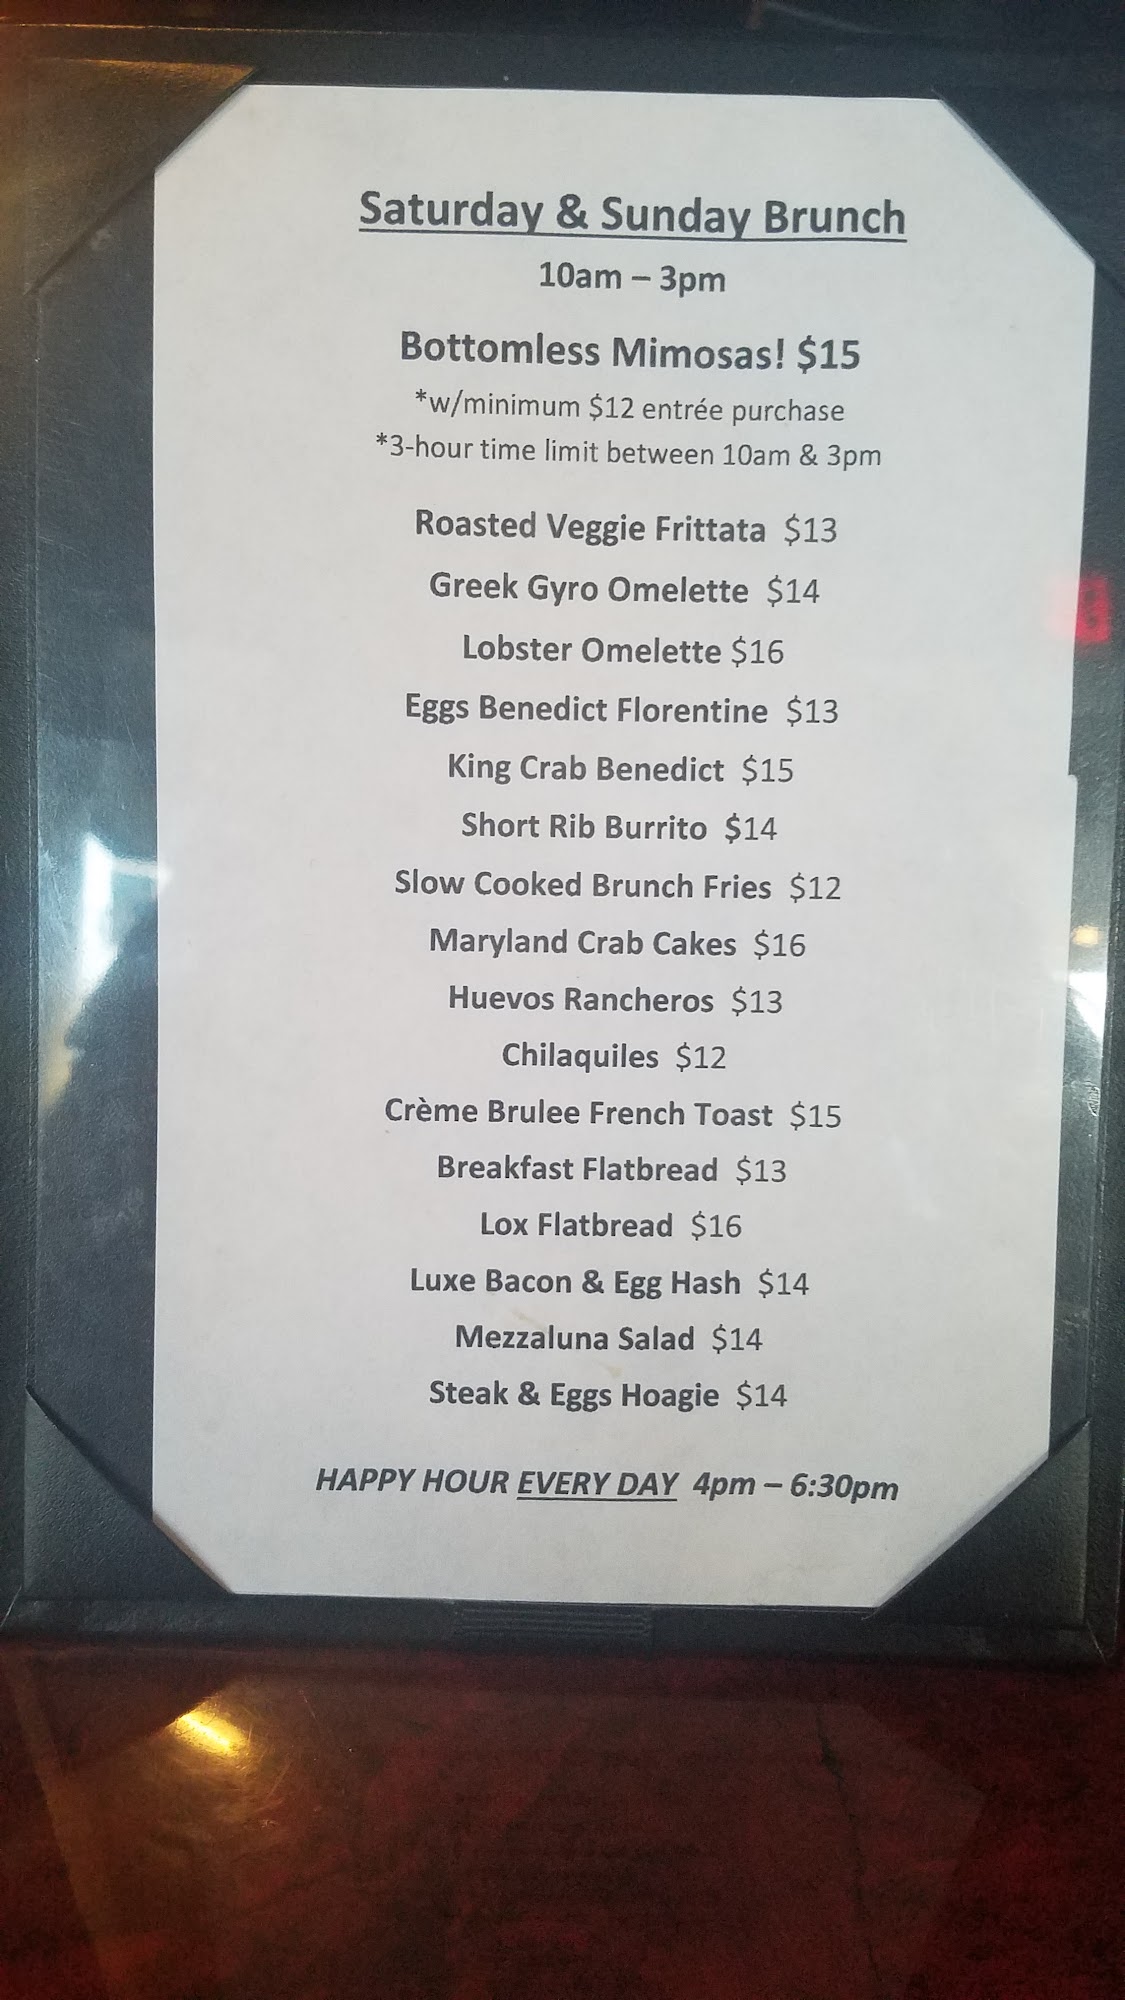 Saturday & Sunday Brunch
10am – 3pm
Bottomless Mimosas! $15
*w/minimum $12 entrée purchase
*3-hour time limit between 10am & 3pm
Roasted Veggie Frittata $13
Greek Gyro Omelette $14
Lobster Omelette $16
Eggs Benedict Florentine $13
King Crab Benedict $15
Short Rib Burrito $14
Slow Cooked Brunch Fries $12
Maryland Crab Cakes $16
Huevos Rancheros $13
Chilaquiles $12
Crème Brulee French Toast $15
Breakfast Flatbread $13
Lox Flatbread $16
Luxe Bacon & Egg Hash $14
Mezzaluna Salad $14
Steak & Eggs Hoagie $14
HAPPY HOUR EVERY DAY 4pm – 6:30pm